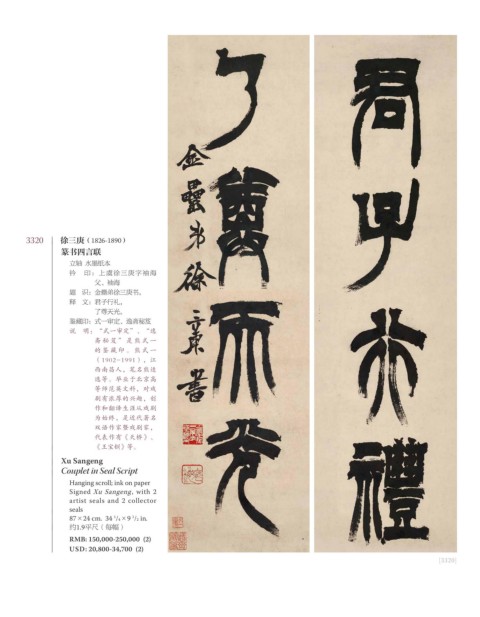 君子行禮
金罍弟徐三庚書
3320
徐三庚（1826-1890）
篆书四言联
立轴 水墨纸本
钤 印：上虞徐三庚字袖海
父、袖海
题 识：金罍弟徐三庚书。
释 文：君子行礼。
了尊天光。
鉴藏印：式一审定、逸斋秘笈
说 明：“式一审定”、“逸
斋秘笈”是熊式一
的鉴藏印。熊式一
（1902-1991），江
西南昌人，笔名熊适
逸等。毕业于北京高
等师范英文科，对戏
剧有浓厚的兴趣，创
作和翻译生涯从戏剧
为始终，是近代著名
双语作家暨戏剧家，
代表作有《天桥》、
《王宝钏》等。
Xu Sangeng
Couplet in Seal Script
Hanging scroll; ink on paper
Signed Xu Sangeng, with 2
artist seals and 2 collector
seals
87×24 cm. 34 1/4×9 1/2 in.
约1.9平尺（每幅）
RMB: 150,000-250,000 (2)
USD: 20,800-34,700 (2)
[3320]